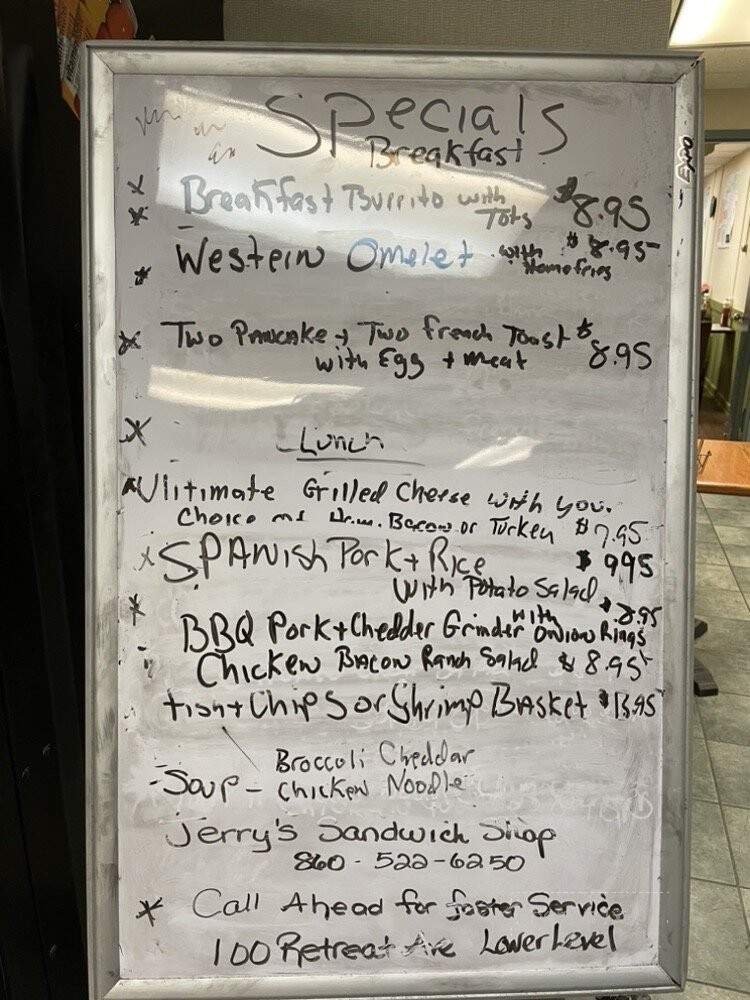 Specials
Breakfast
Breakfast Burrito with Tots $8.95
Western Omelet with Homefries $8.95
Two Pancake + Two french Toast $8.95
with Egg + meat
Lunch
Ulitimate Grilled Cheese with you.
Choice Bacon or Turkey $7.95
SPANish Pork + Rice $995
With Potato Salad
BBQ Pork + Chedder Grinder with Onion Rings $8.95
Chicken Bacon Ranch Salad $8.95
Fish + Chips or Shrimp Basket $13.95
Broccoli Cheddar
-Soup - Chicken Noodle
Jerry's Sandwich Shop
860-522-6250
* Call Ahead for faster Service
100 Retreat Ave Lower Level